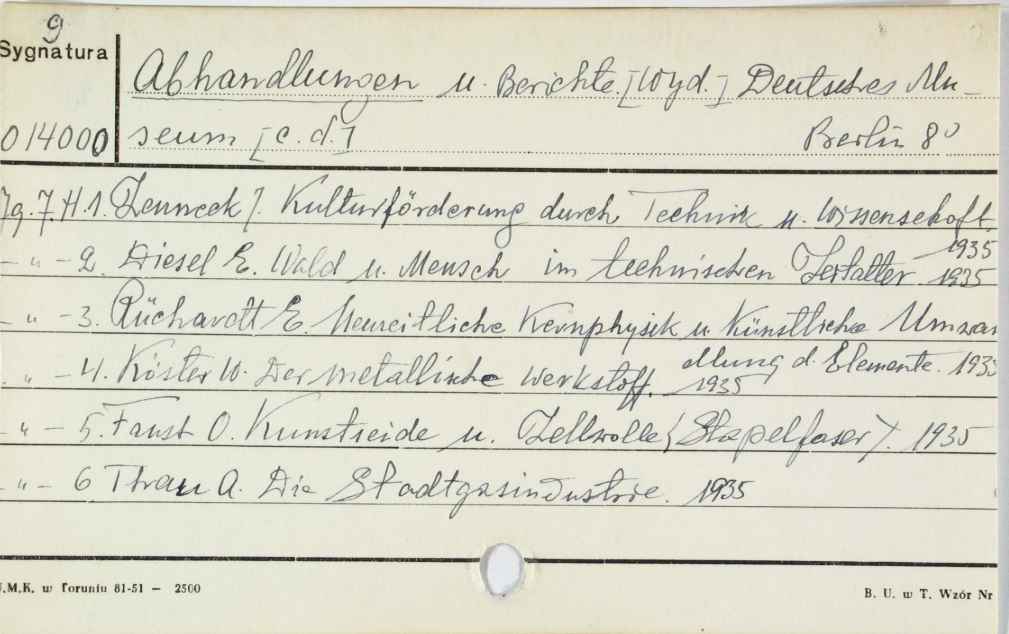 9
Sygnatura
Abhandlungen u. Berichte. [Wyd.] Deutsches Mu-
014000 seum [c.d.] Berlin 8°
Jg. 7. H.1. Zenneck J. Kulturförderung durch Technik u. Wissenschaft.
1935
- " - 2. Diesel E. Wald u. Mensch im technischen Zeitalter. 1935
- " - 3. Rüchardt E. Neuzeitliche Kernphysik u. Künstliche Umwan
dlung d. Elemente. 1935
- " - 4. Köster W. Der metallische Werkstoff. 1935
- " - 5. Faust O. Kunstseide u. Zellwolle (Stapelfaser). 1935
- " - 6 Thau A. Die Stadtgasindustrie. 1935
U.M.K. w Toruniu 81-51 — 2500
B. U. w T. Wzór Nr